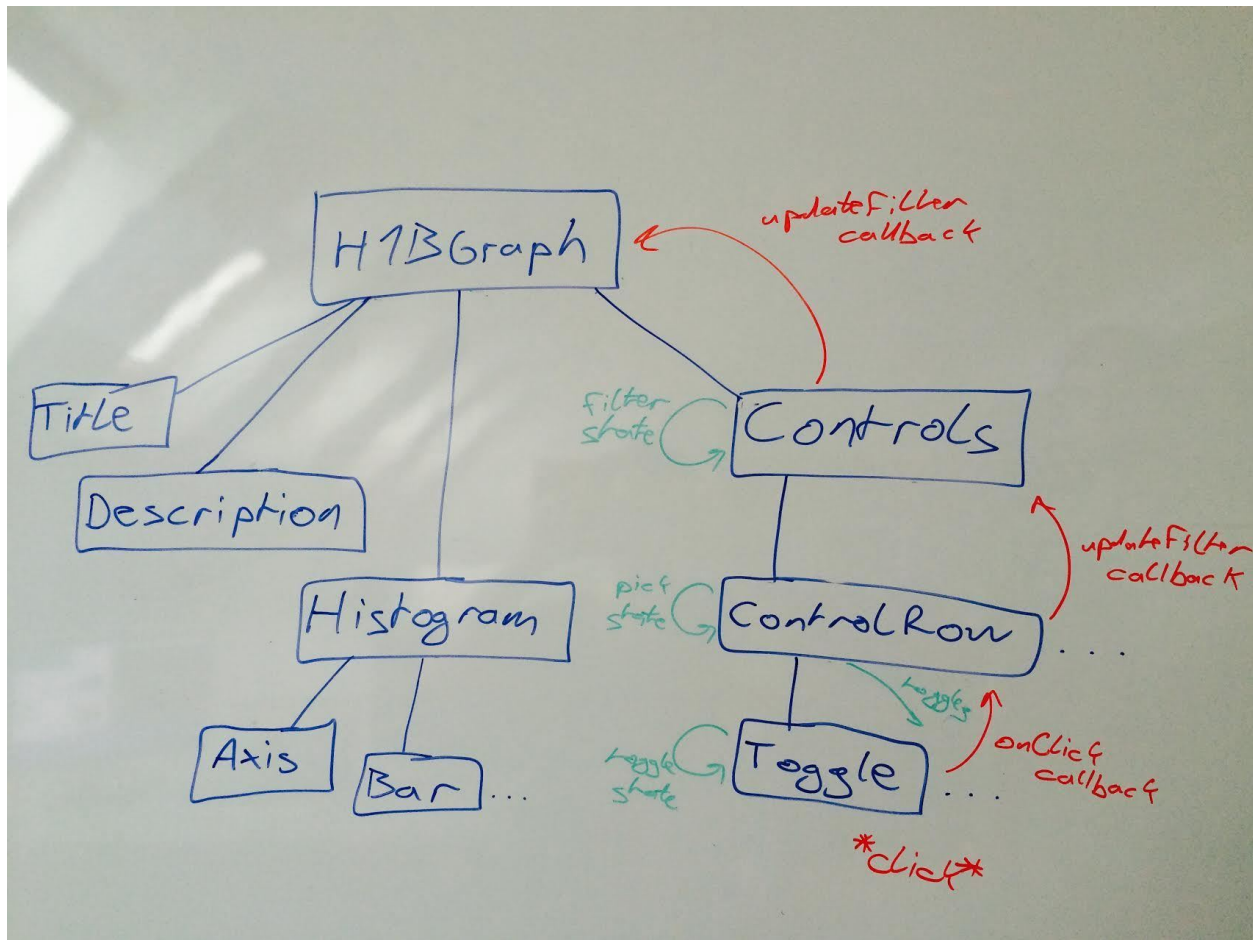 H1BGraph
updateFilter
callback
Title
Description
filter
state
Controls
updateFilter
callback
Histogram
pick
state
ControlRow
. . . .
toggles
Axis
Bar
...
toggle
state
Toggle
. . .
onClick
callback
*click*